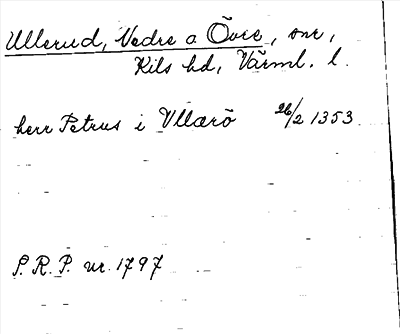 Ullerud, Nedre o Övre, snr,
Kils hd, Värml. l.
herr Petrus i Vllærö 26/2 1353
P. R. P. nr. 1797